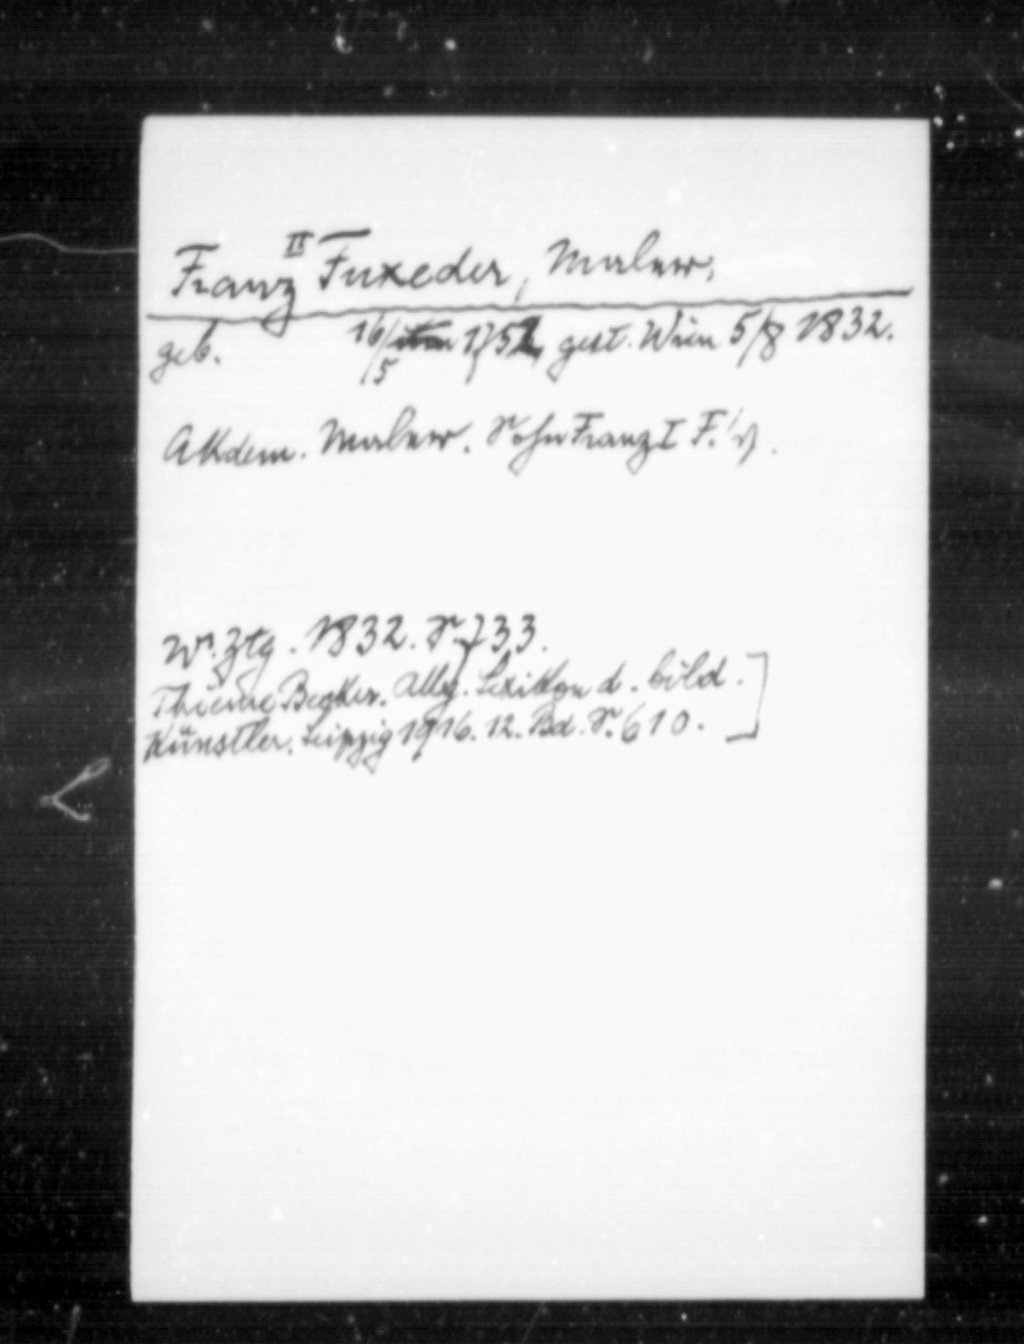 Franz II Fuxeder, Maler.
geb. 16/5 1752, gest. Wien 5/8 1832.
Akdem. Maler. Sohn Franz I F.'s.
W. Ztg. 1832. S. 733.
Thieme Becker. Allg. Lexikon d. bild.
Künstler. Leipzig 1916. 12. Bd. S. 610. ]